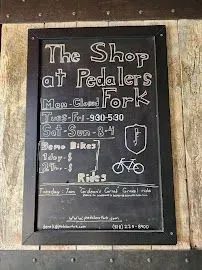 The Shop
at Pedalers
Fork
Mon-Closed
Tues-Fri-9:30-5:30
Sat-Sun-8-4
Demo Bikes
1 day-$
2 Hr-$
Rides
Tuesday: 7am "Gardner's Grind" Gravel ride
www.pedalersfork.com
(818) 225-8900